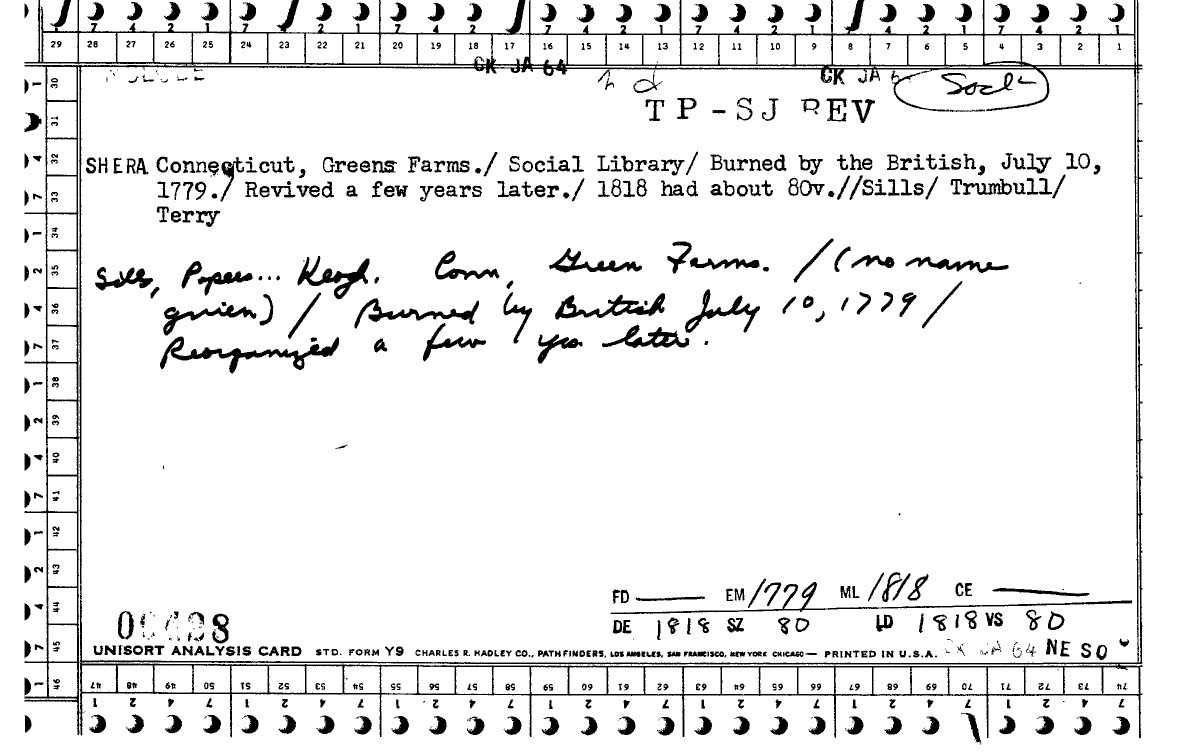 7 4 2 1 7 4 2 1 7 4 2 1 7 4 2 1 7 4 2 1
29 28 27 26 25 24 23 22 21 20 19 18 17 16 15 14 13 12 11 10 9 8 7 6 5 4 3 2 1
CK JA 64
CK JA 6
Socl
TP-SJ REV
SHERA Connecticut, Greens Farms./ Social Library/ Burned by the British, July 10,
1779./ Revived a few years later./ 1818 had about 80v.//Sills/ Trumbull/
Terry
Sills, Papers... Keogh. Conn, Green Farms. / (no name
given) / Burned by British July 10, 1779 /
Reorganized a few yrs later.
1 30
31
4 32
7 33
1 34
2 35
4 36
7 37
1 38
2 39
4 40
7 41
1 42
2 43
4 44
7 45
1 46
FD — EM 1779 ML 1818 CE —
DE 1818 SZ 80 LD 1818 VS 80
UNISORT ANALYSIS CARD STD. FORM Y9 CHARLES R. HADLEY CO., PATHFINDERS, LOS ANGELES, SAN FRANCISCO, NEW YORK CHICAGO— PRINTED IN U.S.A. CK JA 64 NE SO
47 48 49 50 51 52 53 54 55 56 57 58 59 60 61 62 63 64 65 66 67 68 69 70 71 72 73 74
1 2 4 7 1 2 4 7 1 2 4 7 1 2 4 7 1 2 4 7 1 2 4 7 1 2 4 7